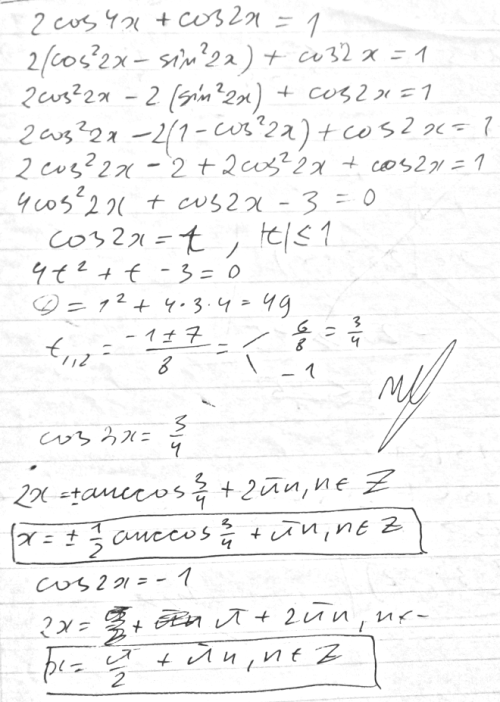 2cos4x + cos2x = 1
2(cos²2x - sin²2x) + cos2x = 1
2cos²2x - 2(sin²2x) + cos2x = 1
2cos²2x - 2(1 - cos²2x) + cos2x = 1
2cos²2x - 2 + 2cos²2x + cos2x = 1
4cos²2x + cos2x - 3 = 0
cos2x = t, |t| ≤ 1
4t² + t - 3 = 0
D = 1² + 4·3·4 = 49
t₁,₂ = (-1 ± 7)/8 = < 6/8 = 3/4
-1
cos2x = 3/4
2x = ± arccos 3/4 + 2πn, n ∈ Z
x = ± 1/2 arccos 3/4 + πn, n ∈ Z
cos2x = -1
2x = π + 2πn, n ∈
x = π/2 + πn, n ∈ Z